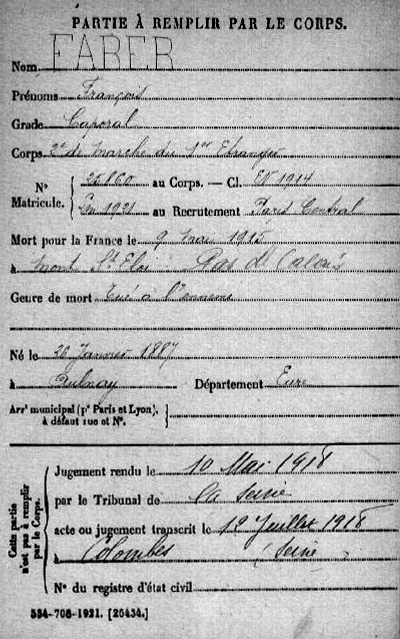 PARTIE À REMPLIR PAR LE CORPS.
Nom FABER
Prénoms François
Grade Caporal
Corps 2e de Marche du 1er Etranger
No Matricule. { 25.860 au Corps. — Cl. EV 1914
1921 au Recrutement Paris Central
Mort pour la France le 9 mai 1915
à Mont St Eloi Pas de Calais
Genre de mort Tué à l'ennemi
Né le 26 Janvier 1887
à Aulnay Département Eure
Arrt municipal (pr Paris et Lyon), à défaut rue et No.
Cette partie n'est pas à remplir par le Corps.
Jugement rendu le 10 Mai 1918
par le Tribunal de la Seine
acte ou jugement transcrit le 12 Juillet 1918
à Colombes (Seine)
No du registre d'état civil
534-708-1921. [26434.]